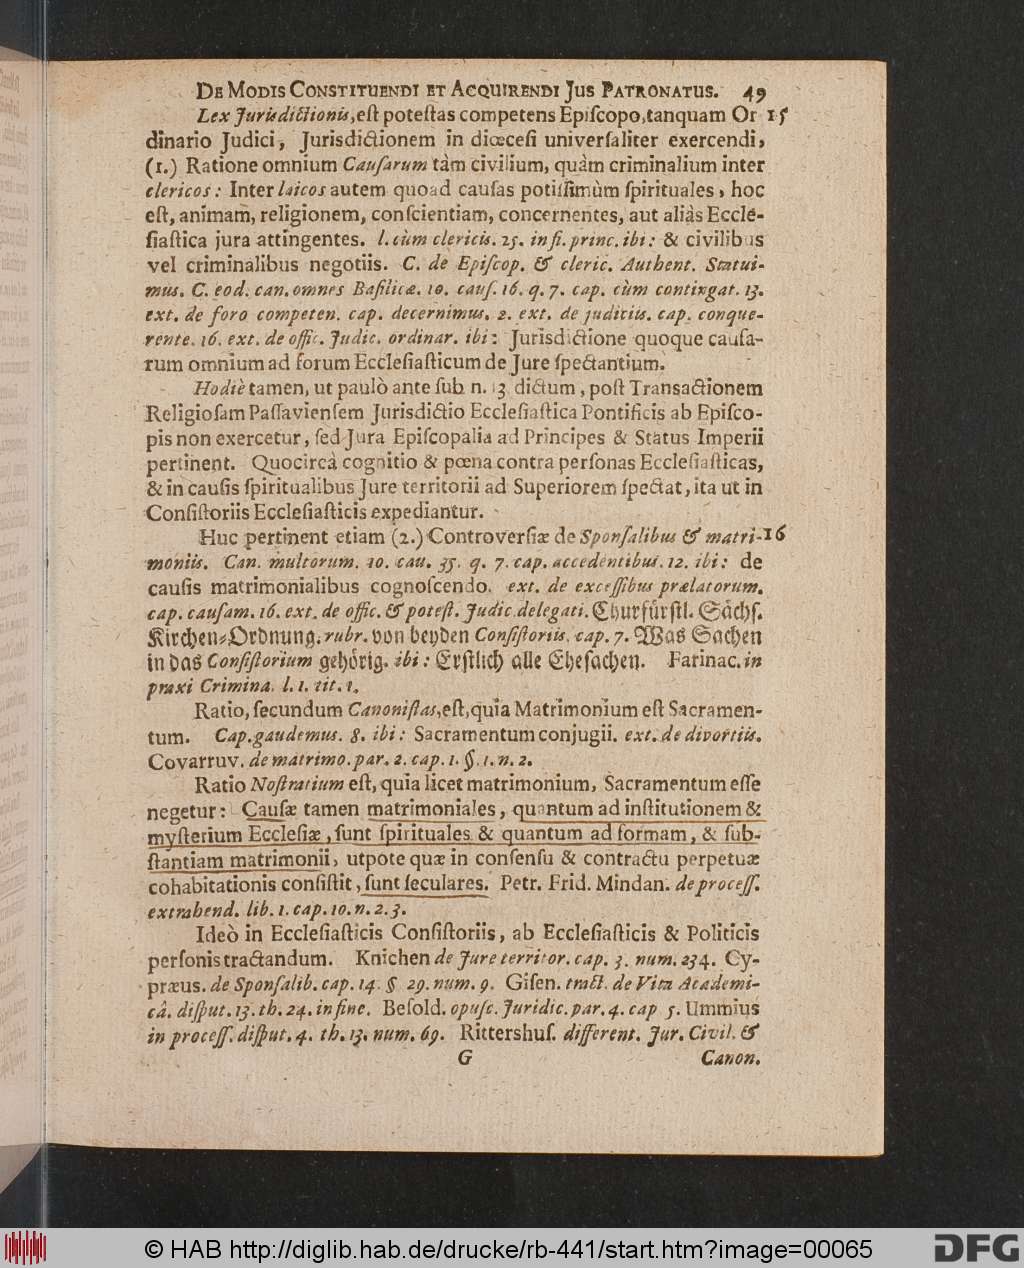 DE MODIS CONSTITUENDI ET ACQUIRENDI JUS PATRONATUS. 49
Lex Jurisdictionis, eſt poteſtas competens Epiſcopo, tanquam Or 15
dinario Judici, Jurisdictionem in diœceſi univerſaliter exercendi,
(1.) Ratione omnium Cauſarum tàm civilium, quàm criminalium inter
clericos: Inter laicos autem quoad cauſas potiſſimùm ſpirituales, hoc
eſt, animam, religionem, conſcientiam, concernentes, aut aliàs Eccle-
ſiaſtica jura attingentes. l. cùm clericis. 25. in fi. princ. ibi: & civilibus
vel criminalibus negotiis. C. de Epiſcop. & cleric. Authent. Statui-
mus. C. eod. can. omnes Baſilicæ. 10. cauſ. 16. q. 7. cap. cùm contingat. 13.
ext. de foro competen. cap. decernimus. 2. ext. de judiciis. cap. conque-
rente. 16. ext. de offic. Judic. ordinar. ibi: Jurisdictione quoque cauſa-
rum omnium ad forum Eccleſiaſticum de Jure ſpectantium.
Hodiè tamen, ut paulò ante ſub n. 13 dictum, poſt Transactionem
Religioſam Paſſavienſem Jurisdictio Eccleſiaſtica Pontificis ab Epiſco-
pis non exercetur, ſed Jura Epiſcopalia ad Principes & Status Imperii
pertinent. Quocircà cognitio & pœna contra perſonas Eccleſiaſticas,
& in cauſis ſpiritualibus Jure territorii ad Superiorem ſpectat, ita ut in
Conſiſtoriis Eccleſiaſticis expediantur.
Huc pertinent etiam (2.) Controverſiæ de Sponſalibus & matri- 16
moniis. Can. multorum. 10. cau. 35. q. 7. cap. accedentibus. 12. ibi: de
cauſis matrimonialibus cognoſcendo. ext. de exceſſibus prælatorum.
cap. cauſam. 16. ext. de offic. & poteſt. Judic. delegati. Churfürſtl. Sächſ.
Kirchen-Ordnung. rubr. von beyden Conſiſtoriis. cap. 7. Was Sachen
in das Conſiſtorium gehörig. ibi: Erſtlich alle Eheſachen. Farinac. in
praxi Crimina. l. 1. tit. 1.
Ratio, ſecundum Canoniſtas, eſt, quia Matrimonium eſt Sacramen-
tum. Cap. gaudemus. 8. ibi: Sacramentum conjugii. ext. de divortiis.
Covarruv. de matrimo. par. 2. cap. 1. §. 1. n. 2.
Ratio Noſtratium eſt, quia licet matrimonium, Sacramentum eſſe
negetur: Cauſæ tamen matrimoniales, quantum ad inſtitutionem &
myſterium Eccleſiæ, ſunt ſpirituales & quantum ad formam, & ſub-
ſtantiam matrimonii, utpote quæ in conſenſu & contractu perpetuæ
cohabitationis conſiſtit, ſunt ſeculares. Petr. Frid. Mindan. de proceſſ.
extrahend. lib. 1. cap. 10. n. 2. 3.
Ideò in Eccleſiaſticis Conſiſtoriis, ab Eccleſiaſticis & Politicis
perſonis tractandum. Knichen de Jure territor. cap. 3. num. 234. Cy-
præus. de Sponſalib. cap. 14. § 29. num. 9. Giſen. tract. de Vita Academi-
câ. diſput. 13. th. 24. in fine. Beſold. opuſc. Juridic. par. 4. cap 5. Ummius
in proceſſ. diſput. 4. th. 13. num. 69. Rittershuſ. different. Jur. Civil. &
G Canon.
© HAB http://diglib.hab.de/drucke/rb-441/start.htm?image=00065
DFG